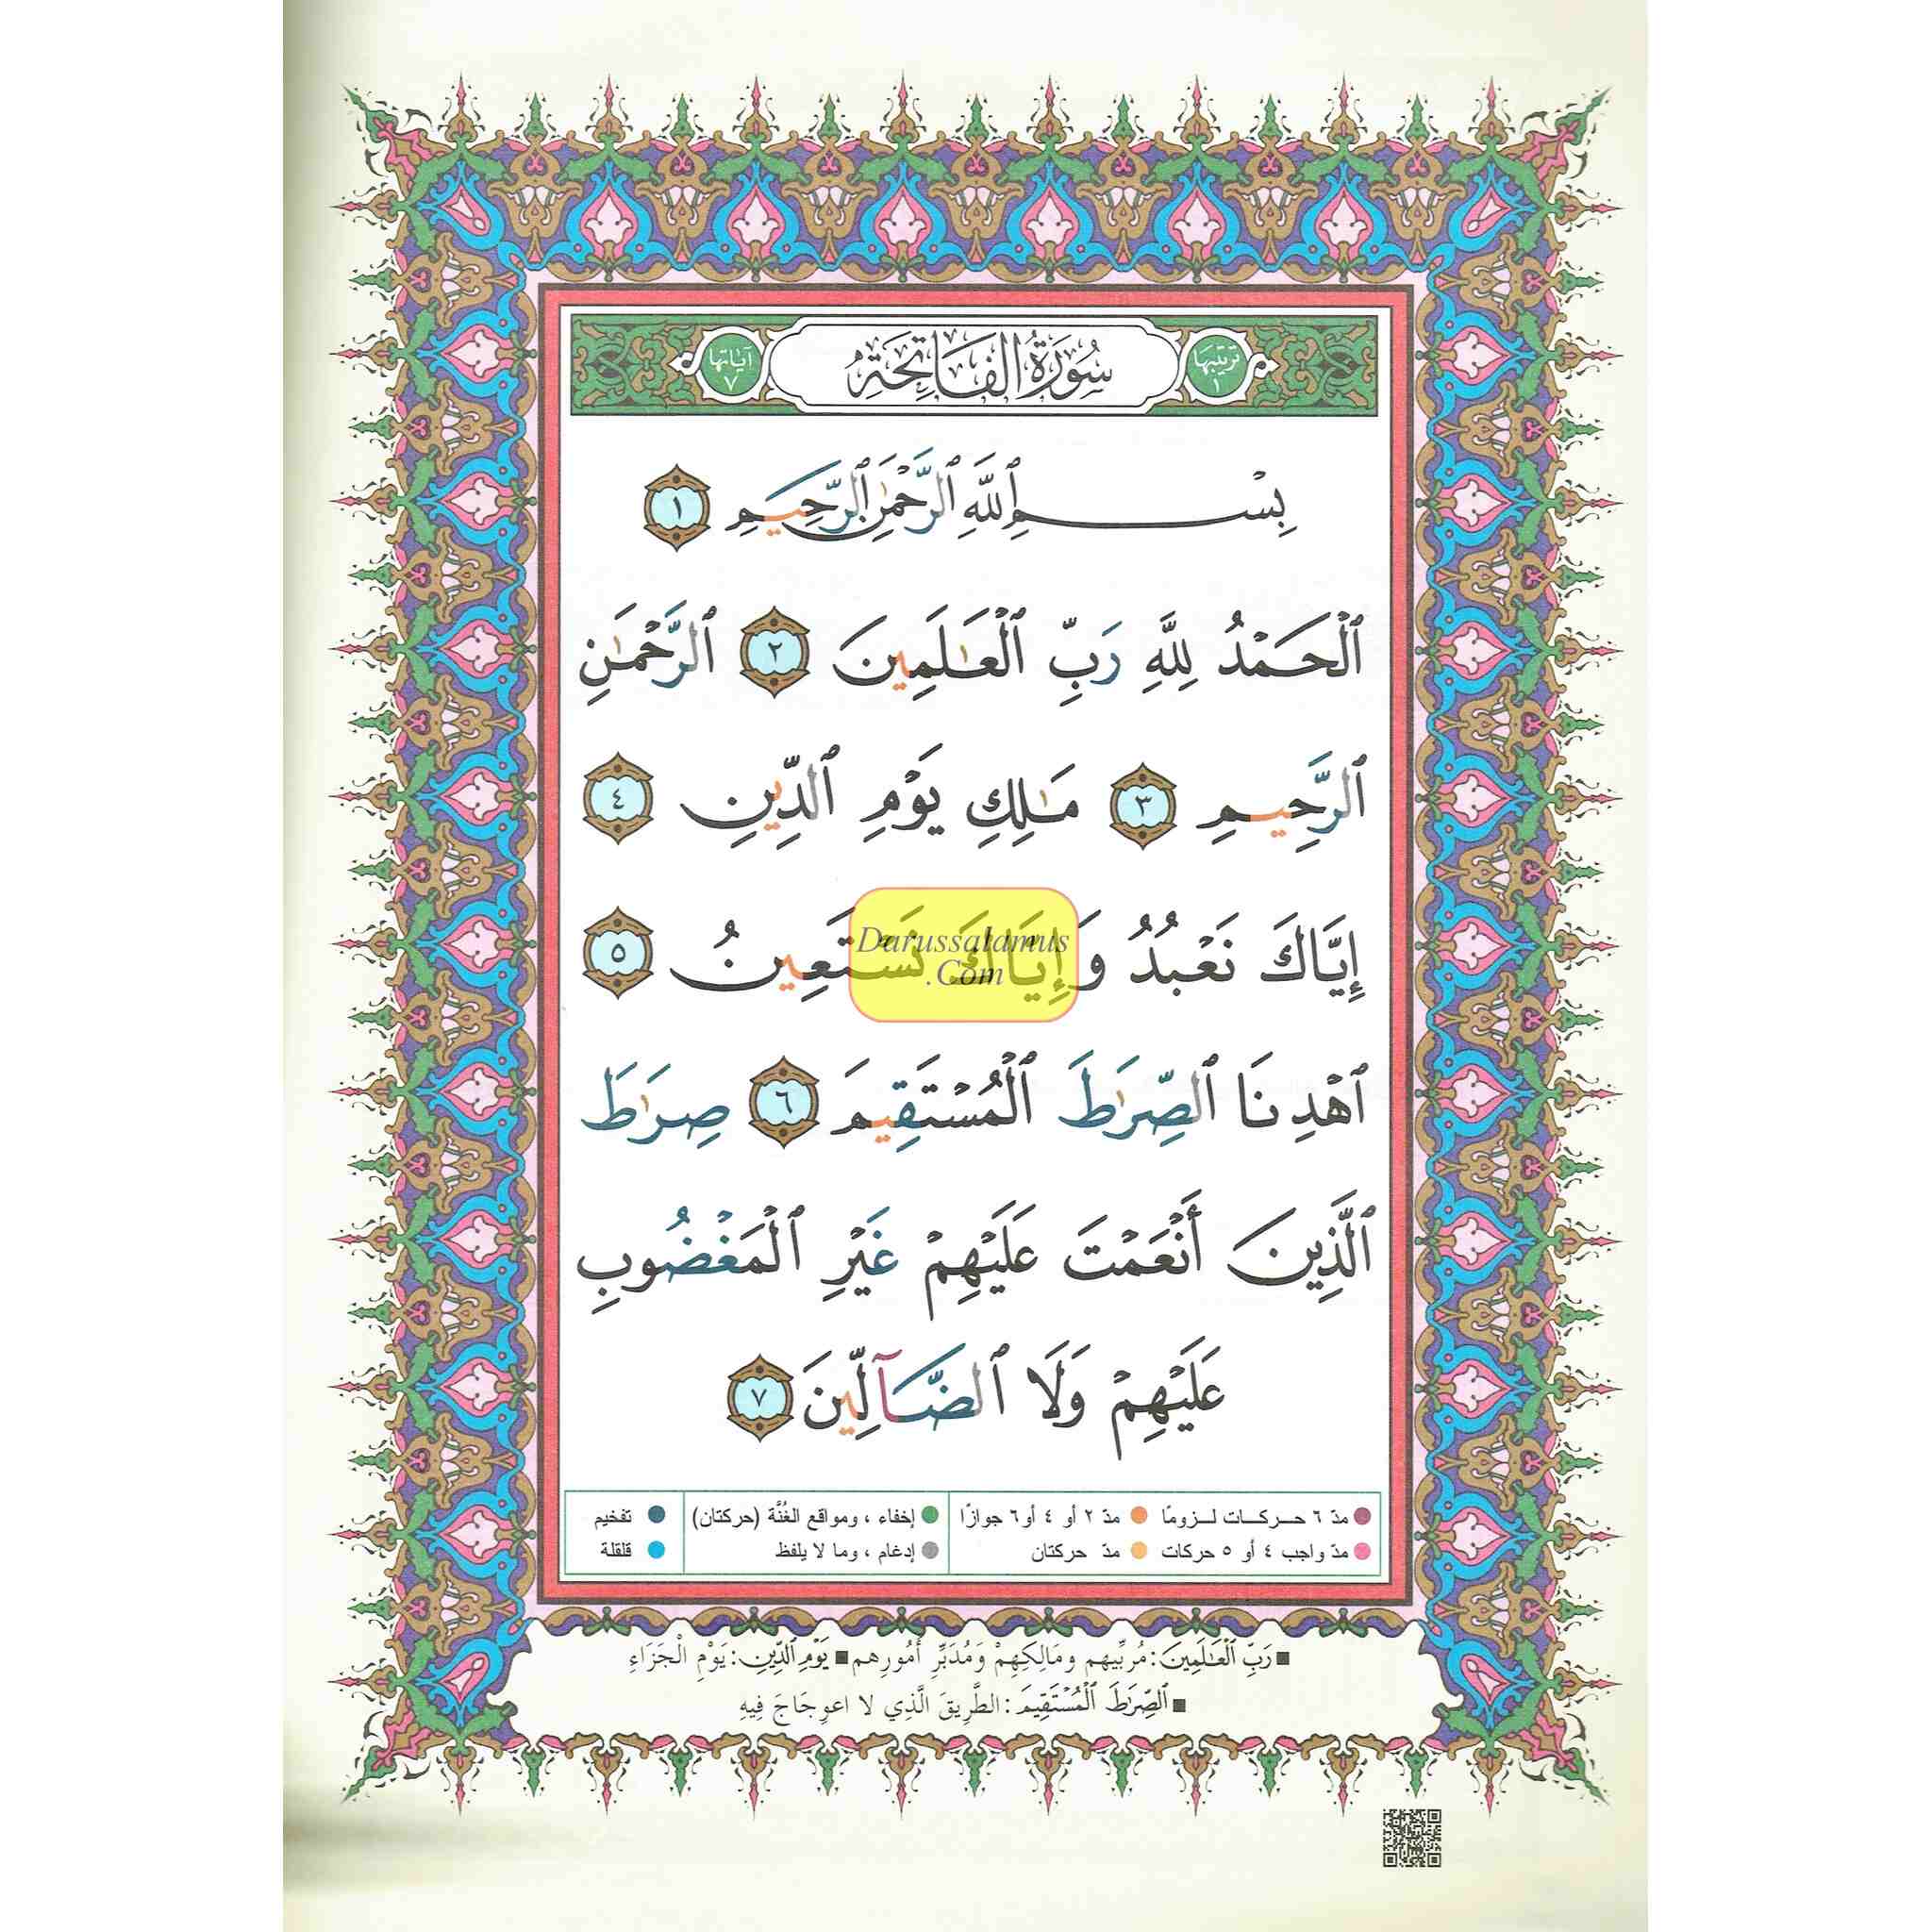 ترتيبها ١
سُورَةُ الفَاتِحَةِ
آياتها ٧
بِسْمِ ٱللَّهِ ٱلرَّحْمَٰنِ ٱلرَّحِيمِ ١
ٱلْحَمْدُ لِلَّهِ رَبِّ ٱلْعَٰلَمِينَ ٢ ٱلرَّحْمَٰنِ
ٱلرَّحِيمِ ٣ مَٰلِكِ يَوْمِ ٱلدِّينِ ٤
إِيَّاكَ نَعْبُدُ وَإِيَّاكَ نَسْتَعِينُ ٥
Darussalamus
.Com
ٱهْدِنَا ٱلصِّرَٰطَ ٱلْمُسْتَقِيمَ ٦ صِرَٰطَ
ٱلَّذِينَ أَنْعَمْتَ عَلَيْهِمْ غَيْرِ ٱلْمَغْضُوبِ
عَلَيْهِمْ وَلَا ٱلضَّآلِّينَ ٧
مدّ ٦ حركات لزومًا ● مدّ ٢ أو ٤ أو ٦ جوازًا ● إخفاء ، ومواقع الغُنَّة (حركتان) ● تفخيم
مدّ واجب ٤ أو ٥ حركات ● مدّ حركتان ● إدغام ، وما لا يلفظ ● قلقلة
■ رَبِّ ٱلْعَٰلَمِينَ: مُرَبِّيهم ومَالِكِهِمْ وَمُدَبِّرِ أُمُورِهم ■ يَوْمِ ٱلدِّينِ: يَوْمِ الْجَزَاءِ
■ ٱلصِّرَٰطَ ٱلْمُسْتَقِيمَ: الطَّرِيقَ الَّذِي لا اعوِجَاجَ فِيهِ